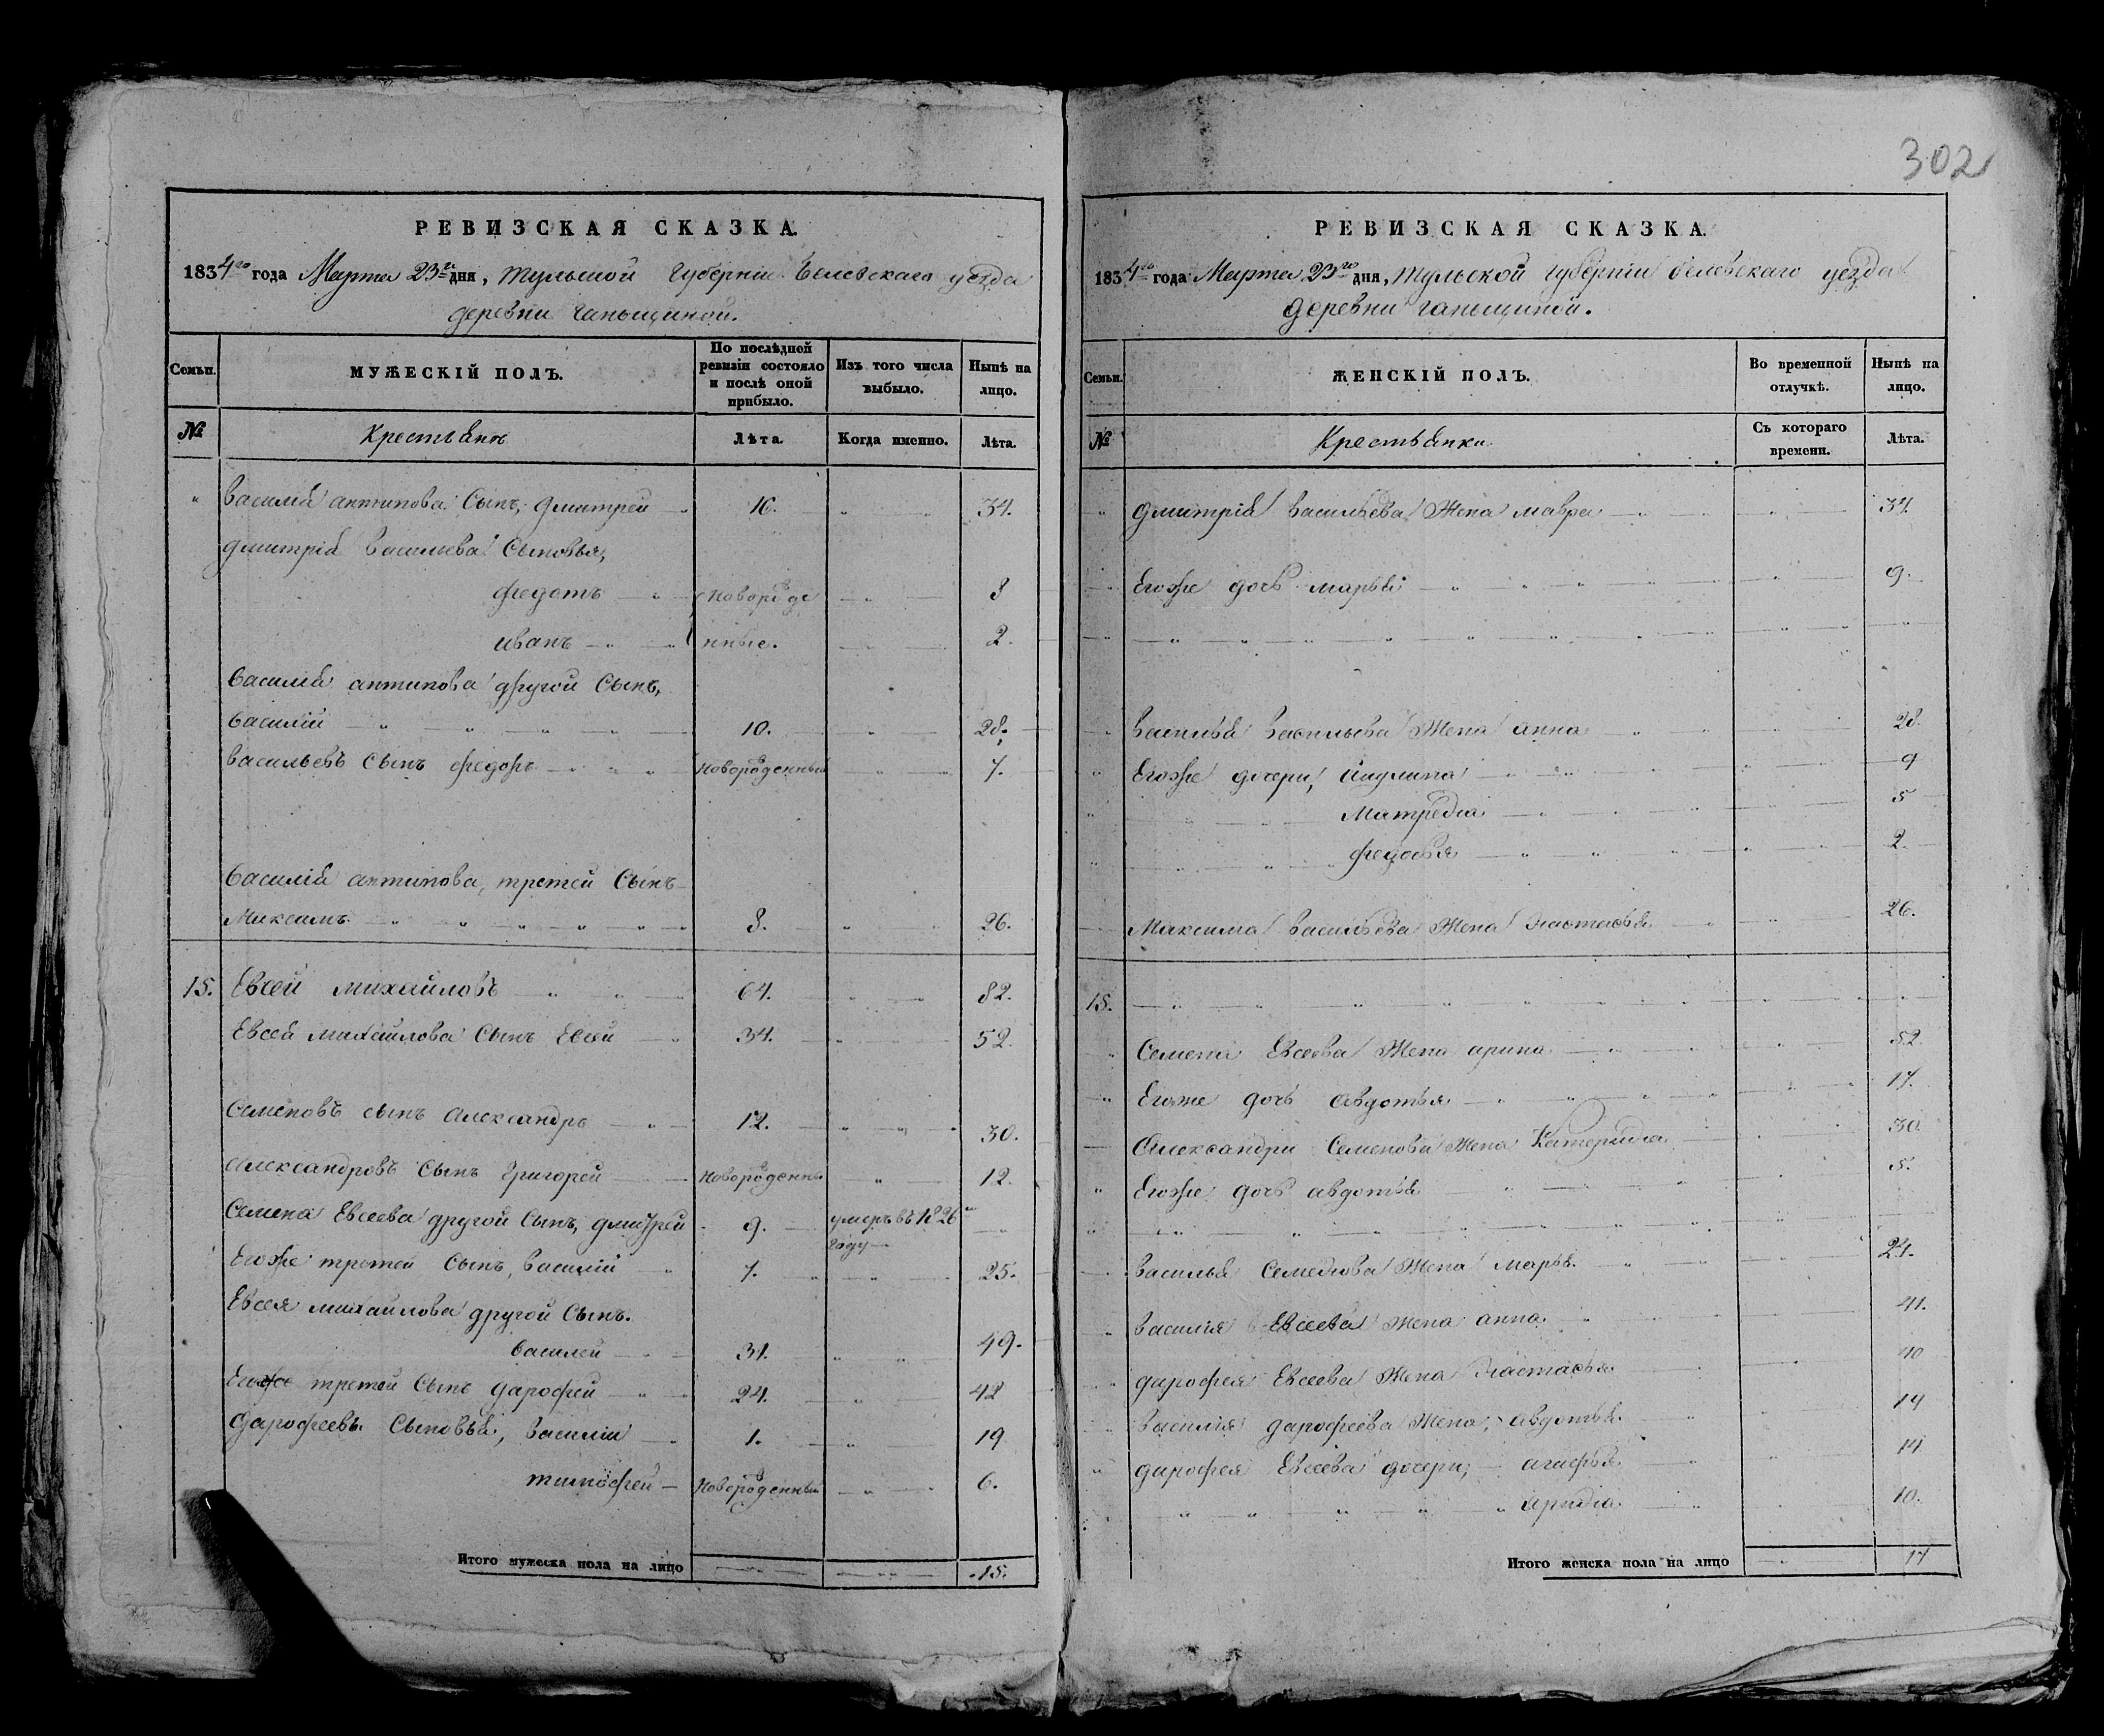 302
РЕВИЗСКАЯ СКАЗКА.
1834го года Марта 23го дня, тульской губернiи белевскаго уезда
деревни ганьщиной.
Семьи. МУЖЕСКIЙ ПОЛЪ. По послѣдней ревизiи состояло и послѣ оной прибыло. Изъ того числа выбыло. Нынѣ на лицо.
№ Крестьянъ Лѣта. Когда именно. Лѣта.
" василья антипова Сынъ, дмитрей 16. 34.
дмитрiя васильева Сыновья,
федотъ новорожде 8
иванъ нные. 2.
василья антипова другой Сынъ,
василiй 10. 28.
васильевъ Сынъ федоръ новорожденный 7.
василья антипова, третей Сынъ
Максимъ 8. 26.
15. Евсей михайловъ 64. 82.
Евсея михайлова Сынъ Евсей 34. 52.
Семеновъ сынъ александръ 12. 30.
александровъ Сынъ григорей новорожденны 12.
Семена Евсеева другой Сынъ, дмитрей 9. умеръ въ 1826м
году
Егоже третей Сынъ, василiй 7. 25.
Евсея михайлова другой Сынъ.
василей 31. 49.
Егоже третей Сынъ дарофей 24. 42
дарофеевъ Сыновья, василiй 1. 19
тимофей новорожденный 6.
Итого мужеска пола на лицо 15.
РЕВИЗСКАЯ СКАЗКА.
1834го года Марта 23го дня, тульской губернiи белевскаго уезда
деревни ганьщиной.
Семьи. ЖЕНСКIЙ ПОЛЪ. Во временной отлучкѣ. Нынѣ на лицо.
№ Крестьянки Съ котораго времени. Лѣта.
" дмитрiя васильева Жена мавра 34.
Егоже дочь марья 9.
василья васильева Жена анна 28.
" Егоже дочери, акулина 9
Матрена 5
федосья 2.
Максима васильева Жена настасья 26.
15.
" Семена Евсеева Жена арина 52
Егоже дочь авдотья 17.
александра Семенова Жена Катерина 30
" Егоже дочь авдотья 5.
василья Семенова Жена марья 24.
" василiя Евсеева Жена анна 41.
дарофея Евсеева Жена настасья 40
василiя дарофеева Жена, авдотья 19
" дарофея Евсеева дочери, агафья 14.
арина 10.
Итого женска пола на лицо 17